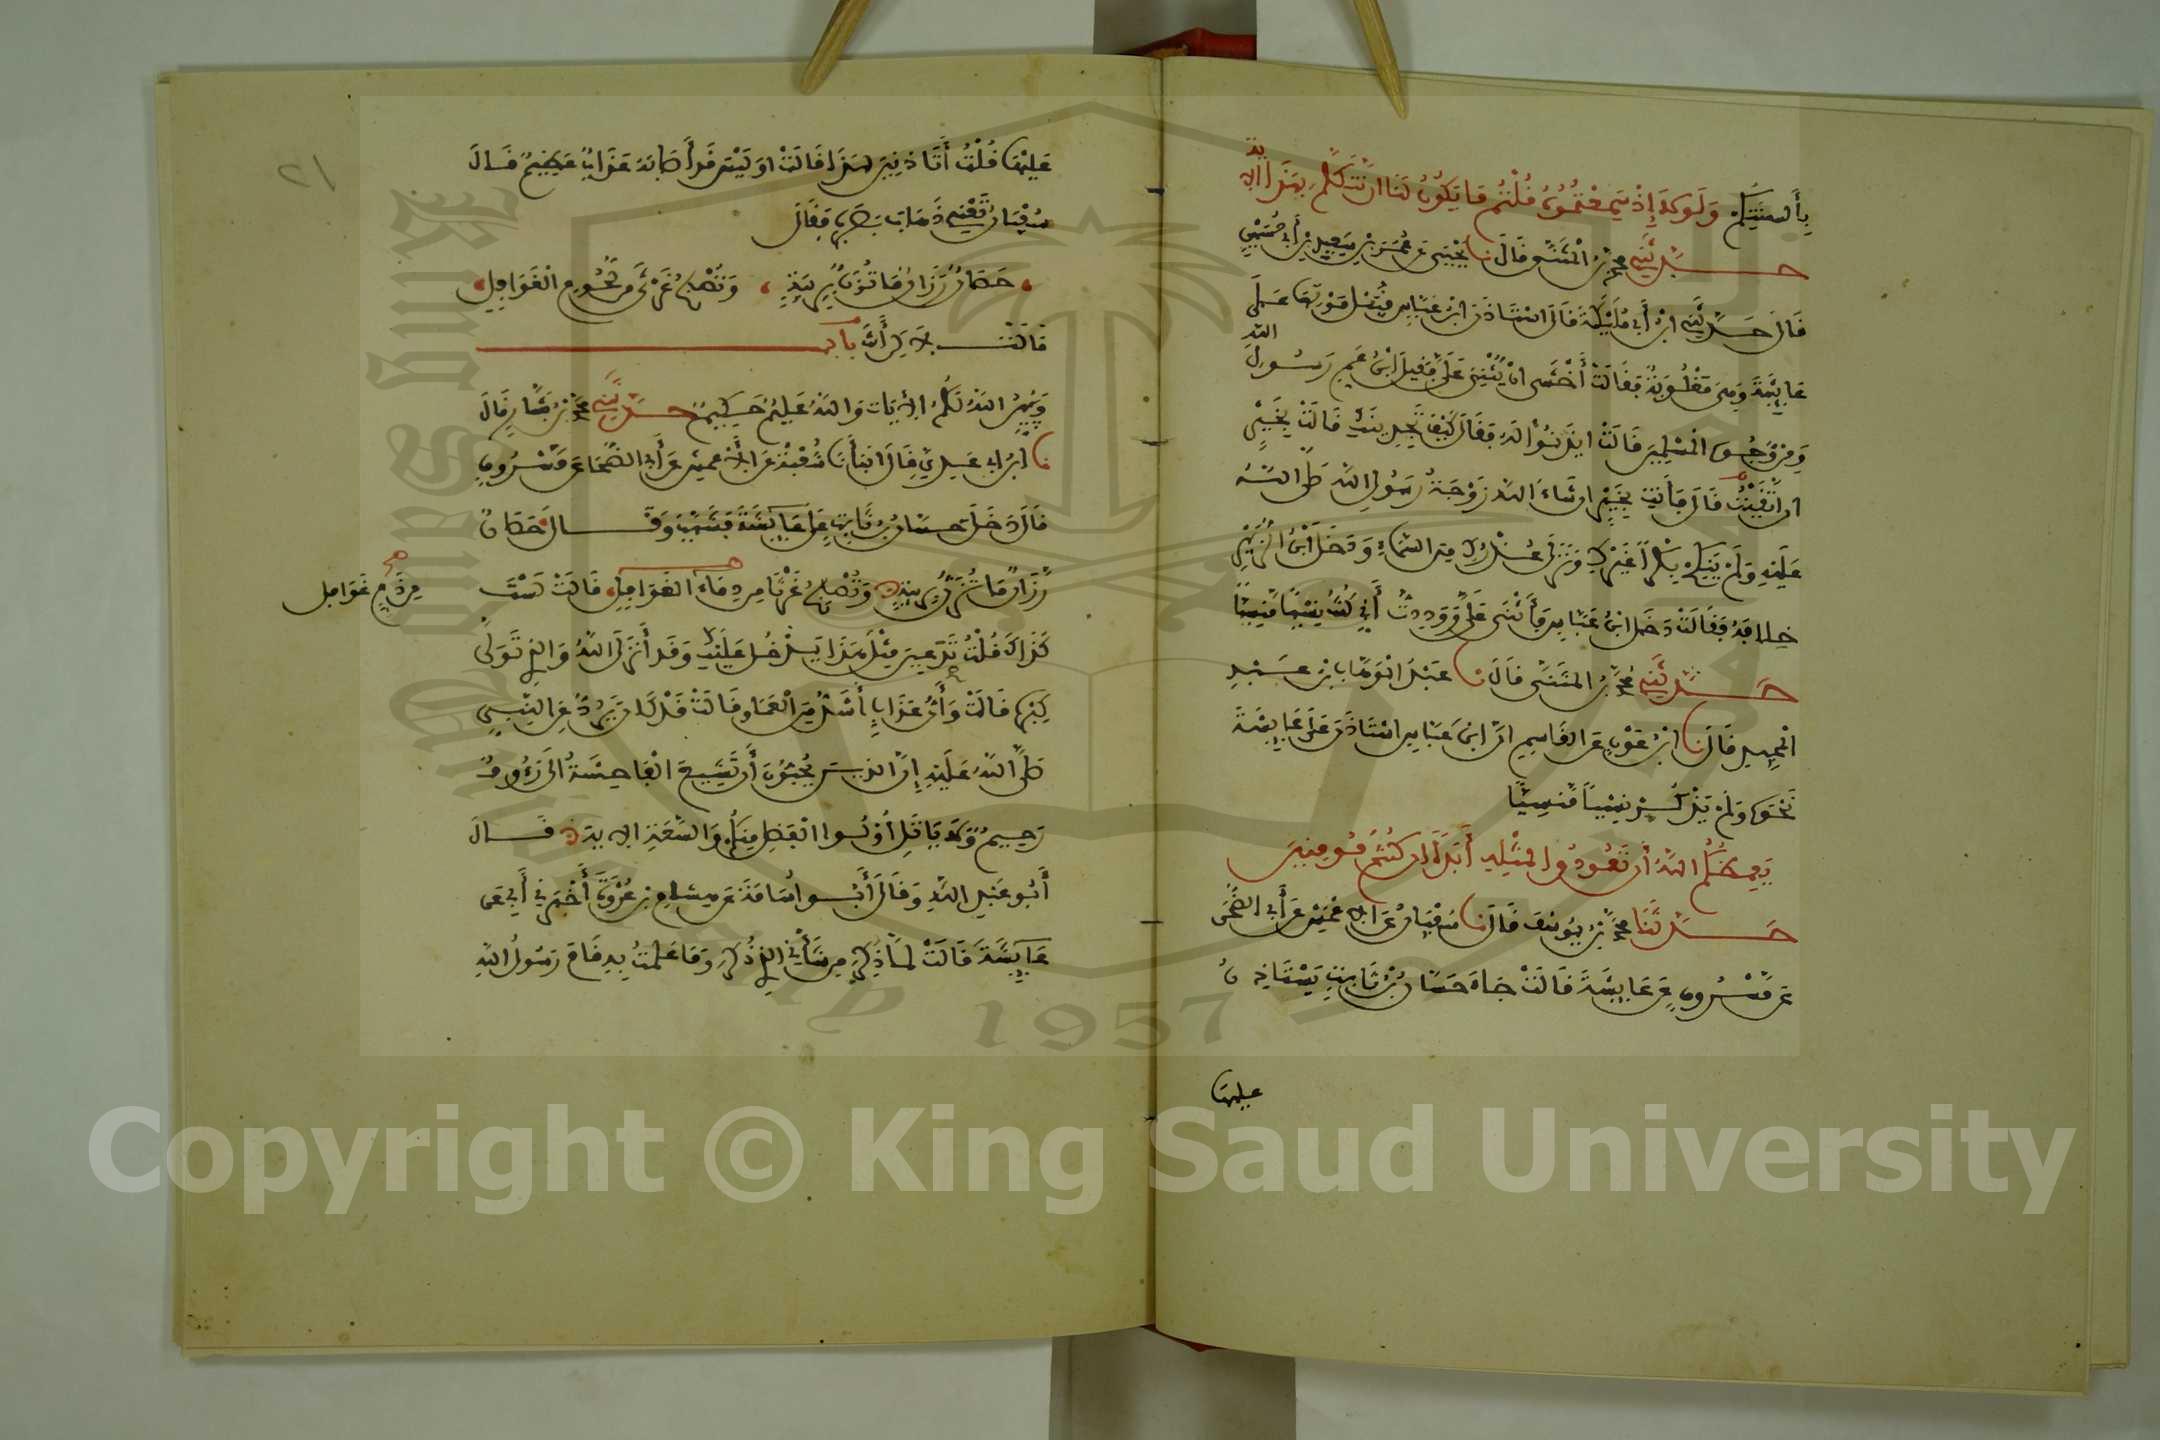 بِأَلْسِنَتِكُمْ وَلَوْلَا إِذْ سَمِعْتُمُوهُ قُلْتُمْ مَا يَكُونُ لَنَا أَنْ نَتَكَلَّمَ بِهَذَا الاية
حَدَّثَنِي محمد بْنُ الْمُثَنَّى قَالَ نا يَحْيَى عَن عُمَرَ بْنِ سَعِيدِ بْنِ أَبِي حُسَيْنٍ
قَالَ حَدَّثَنِي ابْنُ أَبِي مُلَيْكَةَ قَالَ اسْتَاذَنَ ابْنُ عَبَّاسٍ قبل مَوْتِهَا عَلَى
عَايِشَةَ وَهِيَ مَغْلُوبَةٌ فَقَالَتْ أَخْشَى انْ يُثْنِيَ عَلَيَّ فَقِيلَ ابْنُ عَمِّ رَسُولِ الله
وَمِنْ وُجُوهِ الْمُسْلِمِينَ قَالَتْ ايذَنُوا لَهُ فَقَالَ كَيْفَ تَجِدِينَكِ قَالَتْ بِخَيْرٍ
ان اتَّقَيْتُ قَالَ فَأَنْتِ بِخَيْرٍ ان شَاءَ اللَّهُ زَوْجَةُ رَسُولِ اللَّهِ صَلَّى اللَّهُ
عَلَيْهِ وَلَمْ يَنْكِحْ بِكْرًا غَيْرَكِ وَنَزَلَ عُذْرُكِ مِنَ السَّمَاءِ وَدَخَلَ ابْنُ الزُّبَيْرِ
خِلافَهُ فَقَالَتْ دَخَلَ ابْنُ عَبَّاسٍ فَأَثْنَى عَلَيَّ وَوَدِدتُ أَنِّي كُنْتُ نِسْيًا مَنْسِيًّا
حَدَّثَنِي محمد بْنُ المُثَنَّى قَالَ نا عَبْدُ الْوَهَّابِ بْنُ عَبْدِ
الْمَجِيدِ قَالَ نا ابْنُ عَوْنٍ عَنِ القَاسِمِ انَّ ابْنَ عَبَّاسٍ اسْتَاذَنَ عَلَى عَايِشَةَ
نَحْوَهُ وَلَمْ يَذْكُرْ نِسْيًا مَنْسِيًّا
يَعِظُكُمُ اللَّهُ أَن تَعُودُوا لِمِثْلِهِ أَبَدًا ان كُنْتُم مُومِنِينَ
حَدَّثَنَا محمد بْنُ يُوسُفَ قَالَ نا سُفْيَانُ عَنِ الاعْمَشِ عَن أَبِي الضُّحَى
عَن مَسْرُوقٍ عَن عَايِشَةَ قَالَتْ جَاءَ حَسَّانُ بْنُ ثَابِتٍ يَسْتَاذِنُ
عليها
٢١
عَلَيْهَا قُلْتُ أَتَاذَنِينَ لِهَذَا قَالَتْ اوَلَيْسَ قَدْ أَصَابَهُ عَذَابٌ عَظِيمٌ قَالَ
سُفْيَانُ تَعْنِي ذَهَابَ بَصَرِهِ فَقَالَ
حَصَانٌ رَزَانٌ مَا تُزَنُّ بِرِيبَةٍ وَتُصْبِحُ غَرْثَى مِن لُحُومِ الْغَوَافِلِ
قَالَتْ لَاكِنْ أَنْتَ باب
وَيُبَيِّنُ اللَّهُ لَكُمُ الْأَيَاتِ وَاللَّهُ عَلِيمٌ حَكِيمٌ حَدَّثَنِي محمد بْنُ بَشَّارٍ قَالَ
نا ابْنُ ابي عَدِيٍّ قَالَ انبأَنَا شُعْبَةُ عَنِ الْأَعْمَشِ عَن أَبِي الضُّحَا عَن مَسْرُوقٍ
قَالَ دَخَلَ حَسَّانُ بْنُ ثَابِتٍ عَلَى عَايِشَةَ فَشَبَّبَ وَقَالَ حَصَانٌ
رَزَانٌ مَا تُزَنُّ بِرِيبَةٍ وَتُصْبِحُ غَرْثَا مِن دِمَاءِ الغَوَافِلِ قَالَتْ لَسْتَ
مِن دَمِ غَوَافِل
كَذَاكَ قُلْتُ تَدَعِينَ مِثْلَ هَذَا يَدْخُلُ عَلَيْكِ وَقَد أَنْزَلَ اللَّهُ وَالذِي تَوَلَّى
كِبْرَهُ قَالَتْ وَأَيُّ عَذَابٍ أَشَدُّ مِنَ الْعَمَا وَقَالَتْ قَدْ كَانَ يَرُدُّ عَنِ النَّبِيِّ
صَلَّى اللَّهُ عَلَيْهِ إِنَّ الذِينَ يُحِبُّونَ أَن تَشِيعَ الْفَاحِشَةُ الى رَءُوفٌ
رَحِيمٌ وَلَا يَاتَلِ أُوْلُوا الْفَضْلِ مِنْكُمْ وَالسَّعَةِ الاية قَالَ
أَبُو عَبْدِ اللَّهِ وَقَالَ أَبُو اُسَامَةَ عَن هِشَامِ بْنِ عُرْوَةَ أَخْبَرَنِي أَبِي عَن
عَايِشَةَ قَالَتْ لَمَّا ذُكِرَ مِن شَأْنِي الذِي ذُكِرَ وَمَا عَلِمْتُ بِهِ قَامَ رَسُولُ اللَّهِ
King Saud University
1957
Copyright © King Saud University